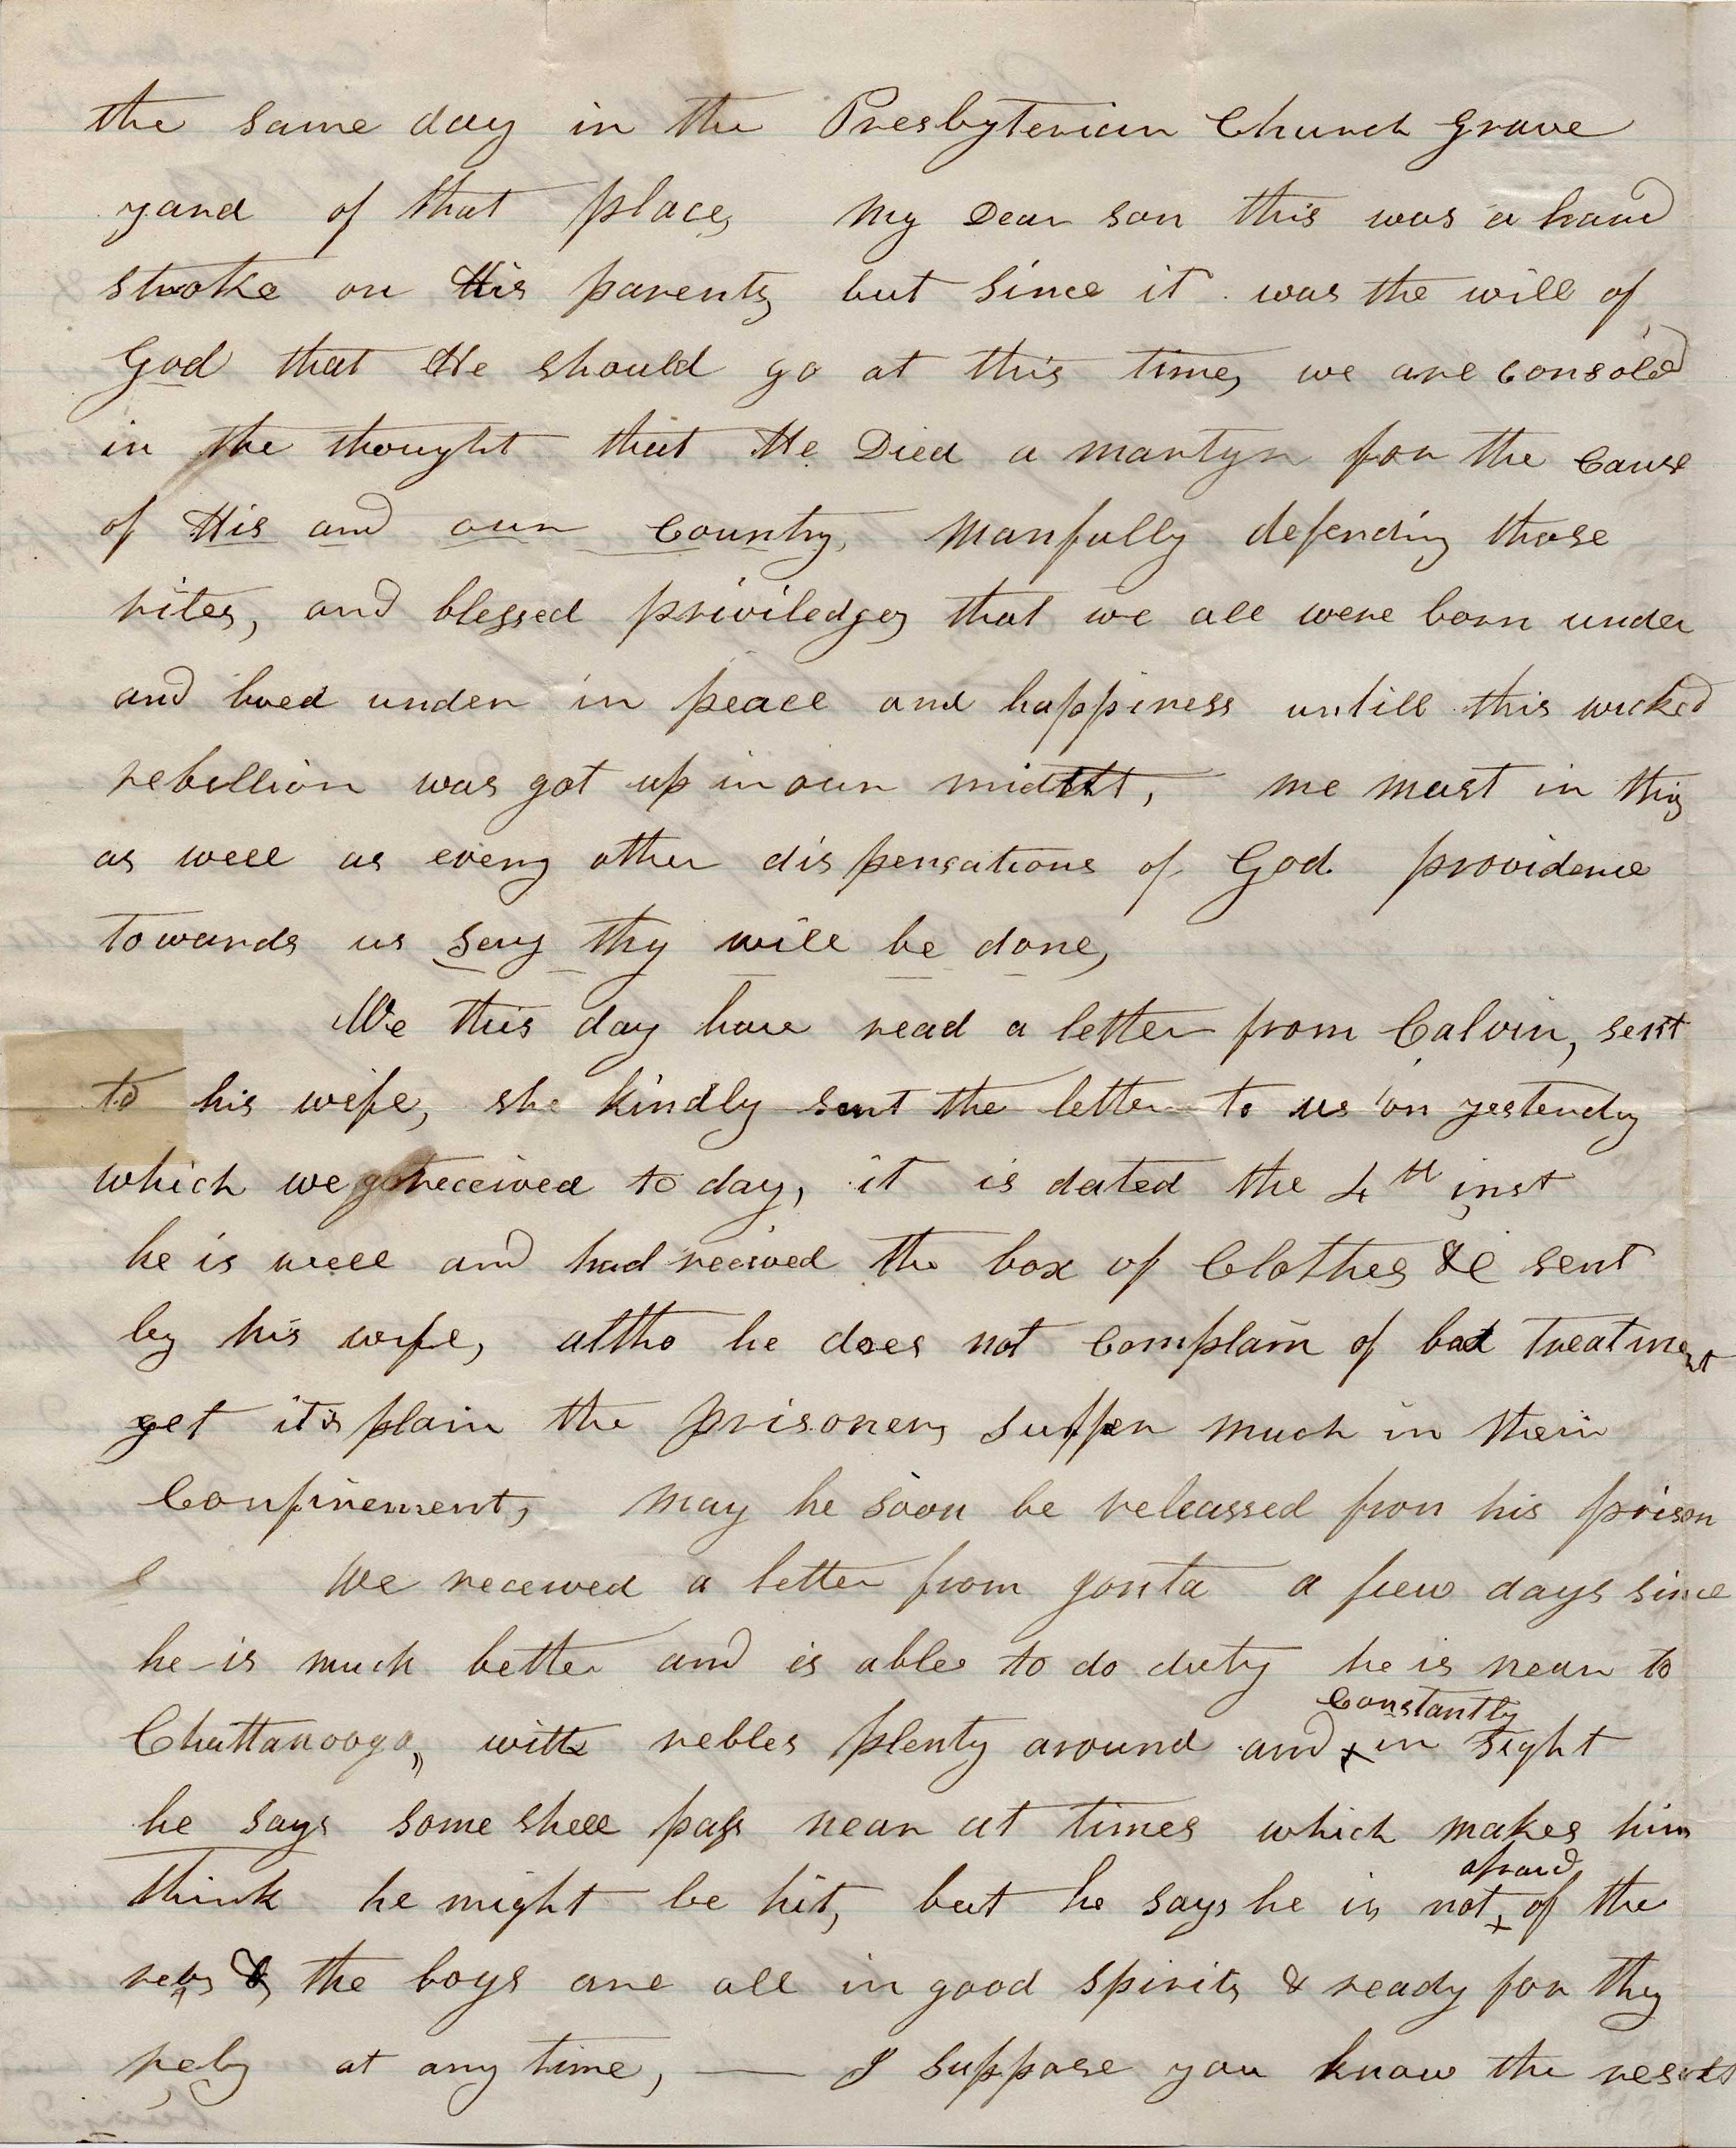 the same day in the Presbyterian Church Grave
yard of that place, My Dear son this was a hard
stroke on His parents but since it was the will of
God that He should go at this time, we are consoled
in the thought that He Died a martyr for the Cause
of His and our Country, Manfully defending those
rites, and blessed priviledges that we all were born under
and lived under in peace and happiness untill this wicked
rebellion was got up in our midst, we must in this
as well as every other dispensations of God providence
towards us say thy will be done,
We this day have read a letter from Calvin, sent
to his wife, she kindly sent the letter to us on yesterday
which we received to day, it is dated the 4th inst
he is well and had received the box of Clothes &C sent
by his wife, altho he does not Complain of bad treatment
yet its plain the prisoners suffer much in their
Confinement, May he soon be released from his prison
We received a letter from a few days since
he is much better and is able to do duty he is near to
Chattanooga, with rebles plenty around and constantly in sight
he says some shell pass near at times which makes him
think he might be hit, but he says he is not afraid of the
rebs & the boys are all in good spirits & ready for the
rebs at any time, — I suppose you know the